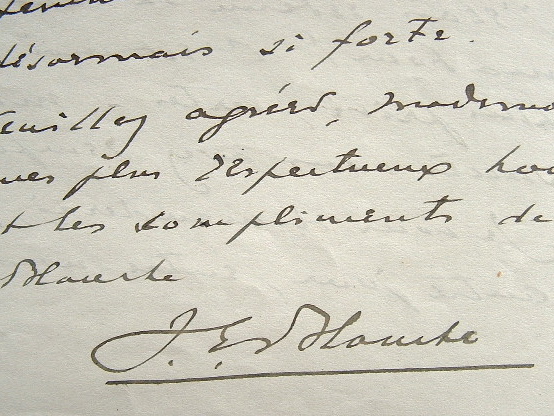 désormais si forte.
veuillez agréer, madame
mes plus respectueux
et les compliments de
Blanche
J. E. Blanche